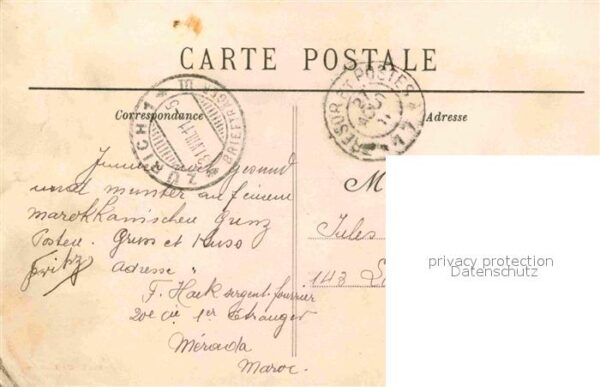 CARTE POSTALE
Correspondance
Adresse
ZÜRICH 1
BRIEFTRÄGER
TRESOR ET POSTES
44
Immer noch gesund
und munter auf einem
marokkanischen Grenz
Posten. Gruss et Kuss
Fritz
Adresse "
F. Haek sergent-fourrier
20e Cie 1er Etranger
Mérada
Maroc.
M
Jules
143
privacy protection
Datenschutz